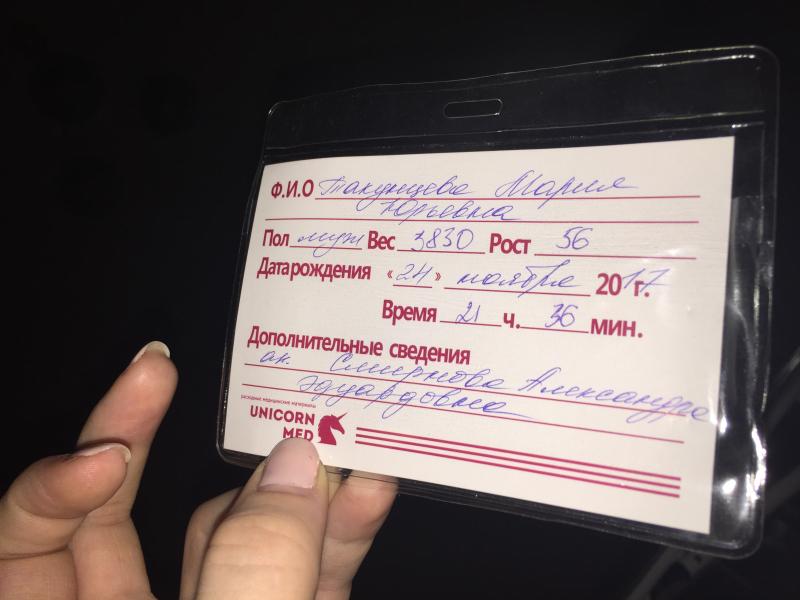 Ф.И.О Такунцева Мария
Юрьевна
Пол муж Вес 3830 Рост 56
Дата рождения «24» ноября 2017 г.
Время 21 ч. 36 мин.
Дополнительные сведения
ак. Смирнова Александра
Эдуардовна
расходные медицинские материалы
UNICORN
MED